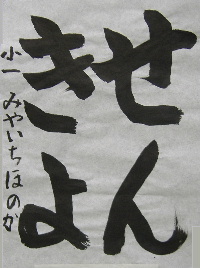 せん
きよ
小一 みやいちほのか